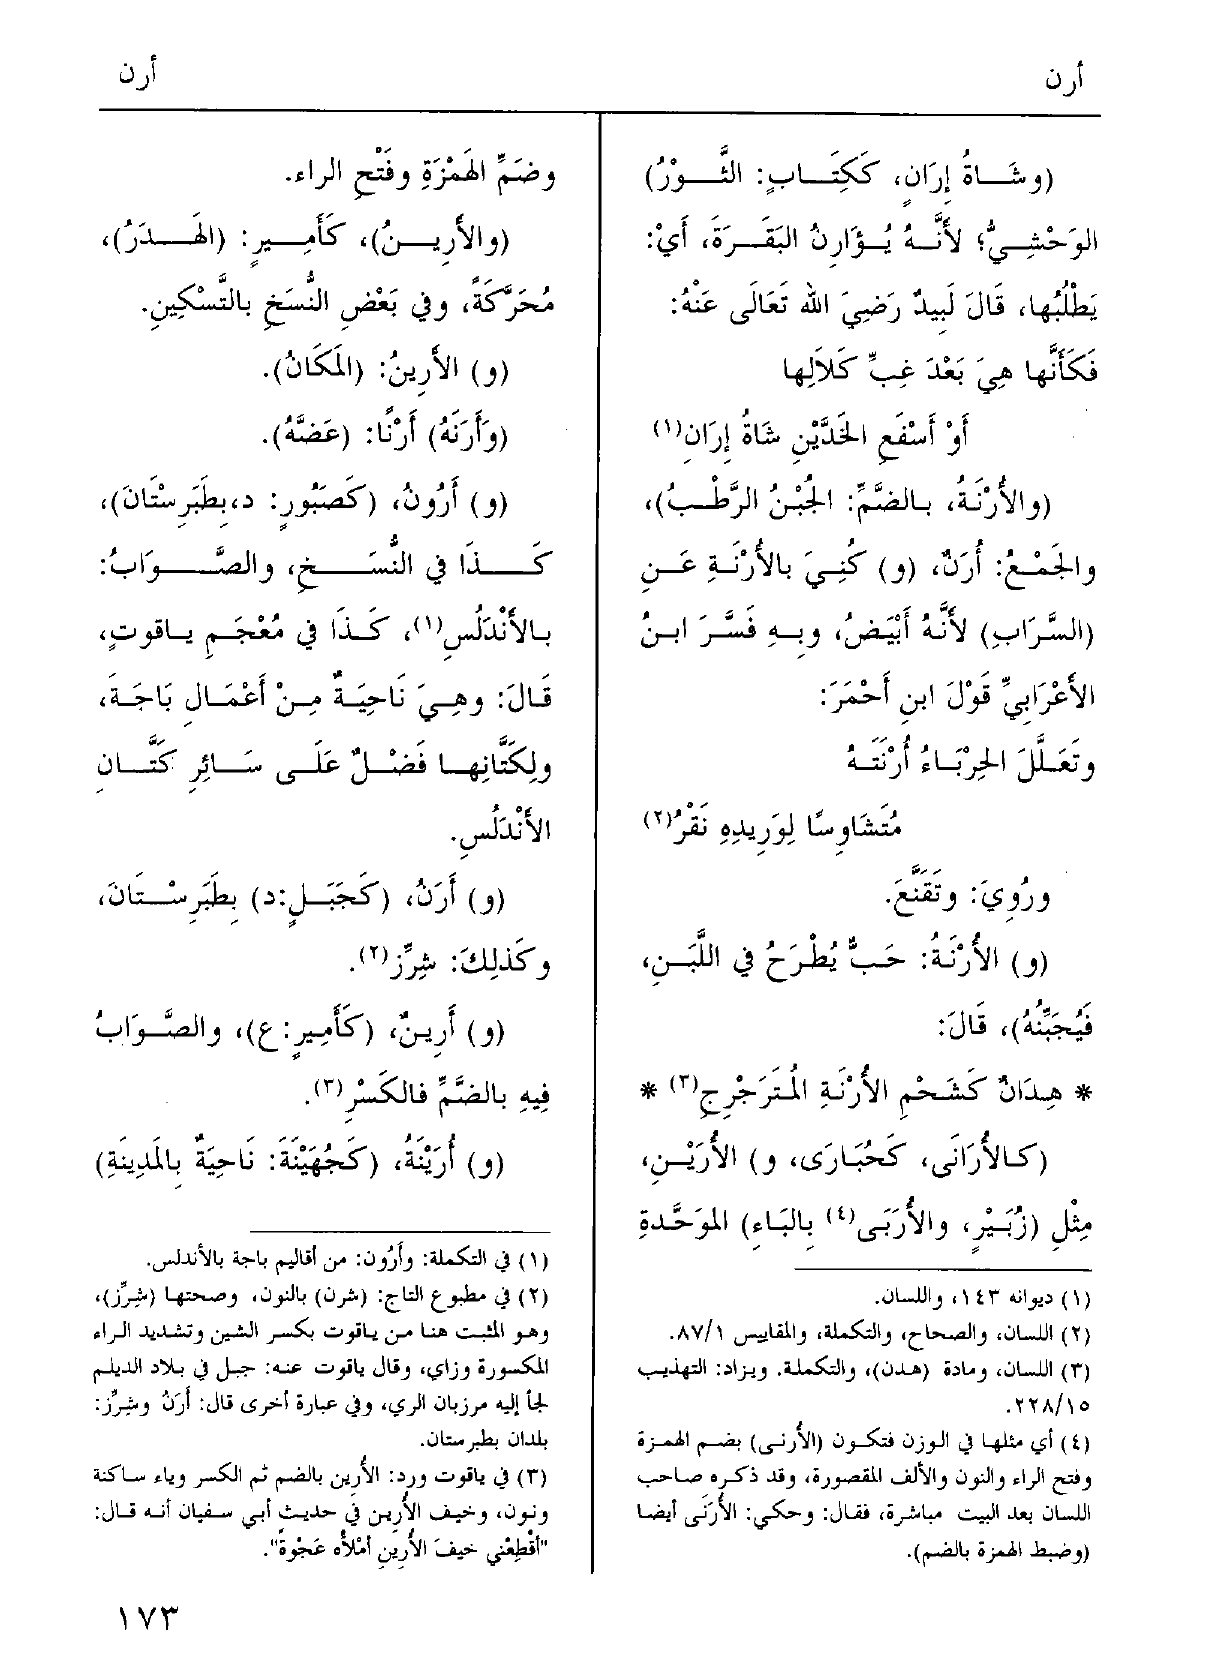 أرن
أرن
(وشَاةُ إِرَانٍ، كَكِتَابٍ: الثَّوْرُ)
الوَحْشِيُّ؛ لأَنَّهُ يُؤَارِنُ البَقَرَةَ، أَيْ:
يَطْلُبُها، قَالَ لَبِيدٌ رَضِيَ الله تَعَالَى عَنْهُ:
فَكَأَنَّها هِيَ بَعْدَ غِبِّ كَلَالِها
أَوْ أَسْفَعِ الخَدَّيْنِ شَاةُ إِرَانِ(١)
(والأُرْنَةُ، بالضَّمِّ: الجُبْنُ الرَّطْبُ)،
والجَمْعُ: أُرَنٌ، (و) كُنِيَ بالأُرْنَةِ عَنِ
(السَّرَابِ) لأَنَّهُ أَبْيَضُ، وبِهِ فَسَّرَ ابنُ
الأَعْرَابِيِّ قَوْلَ ابنِ أَحْمَرَ:
وتَعَلَّلَ الحِرْبَاءُ أُرْنَتَهُ
مُتَشَاوِسًا لِوَرِيدِهِ نَقْرُ(٢)
ورُوِيَ: وتَقَنَّعَ.
(و) الأُرْنَةُ: حَبٌّ يُطْرَحُ في اللَّبَنِ،
فَيُجَبِّنُهُ)، قَالَ:
* هِدَانٌ كَشَحْمِ الأُرْنَةِ المُتَرَجْرِجِ(٣) *
(كالأُرَانَى، كَحُبَارَى، و) الأُرَيْنِ،
مِثْلِ (زُبَيْرٍ، والأُرَبَى(٤) بِالبَاءِ) المُوَحَّدَةِ
(١) ديوانه ١٤٣، واللسان.
(٢) اللسان، والصحاح، والتكملة، والمقاييس ٨٧/١.
(٣) اللسان، ومادة (هدن)، والتكملة. ويزاد: التهذيب
٢٢٨/١٥.
(٤) أي مثلها في الوزن فتكون (الأُرنى) بضم الهمزة
وفتح الراء والنون والألف المقصورة، وقد ذكره صاحب
اللسان بعد البيت مباشرة، فقال: وحكي: الأُرنَى أيضا
(وضبط الهمزة بالضم).
وضَمِّ الهَمْزَةِ وفَتْحِ الراء.
(والأَرِينُ)، كَأَمِيرٍ: (الهَدَرُ)،
مُحَرَّكَةً، وفي بَعْضِ النُّسَخِ بالتَّسْكِينِ.
(و) الأَرِينُ: (المَكَانُ).
(وَأَرَنَهُ) أَرْنًا: (عَضَّهُ).
(و) أَرُونُ، (كَصَبُورٍ: د،بِطَبَرِسْتَانَ)،
كَذَا في النُّسَخِ، والصَّوَابُ:
بالأَنْدَلُسِ(١)، كَذَا في مُعْجَمِ ياقوتٍ،
قَالَ: وهِيَ نَاحِيَةٌ مِنْ أَعْمَالِ بَاجَةَ،
ولِكَتَّانِهَا فَضْلٌ عَلَى سَائِرِ كَتَّانِ
الأَنْدَلُسِ.
(و) أَرَنُ، (كَجَبَلٍ:د) بِطَبَرِسْتَانَ،
وكَذلِكَ: شِرِّز(٢).
(و) أَرِينٌ، (كَأَمِيرٍ: ع)، والصَّوَابُ
فِيهِ بالضَّمِّ فالكَسْرِ(٣).
(و) أُرَيْنَةُ، (كَجُهَيْنَةَ: نَاحِيَةٌ بِالمَدِينَةِ)
(١) في التكملة: وأَرُون: من أقاليم باجة بالأندلس.
(٢) في مطبوع التاج: (شرن) بالنون، وصحتها (شِرِّز)،
وهو المثبت هنا من ياقوت بكسر الشين وتشديد الراء
المكسورة وزاي، وقال ياقوت عنه: جبل في بلاد الديلم
لجأ إليه مرزبان الري، وفي عبارة أخرى قال: أرَنُ وشِرِّز:
بلدان بطبرستان.
(٣) في ياقوت ورد: الأُرين بالضم ثم الكسر وياء ساكنة
ونون، وخيف الأُرِين في حديث أبي سفيان أنه قال:
"أَقْطِعْني خيفَ الأُرِينِ أَمْلأْه عَجْوةً".
١٧٣